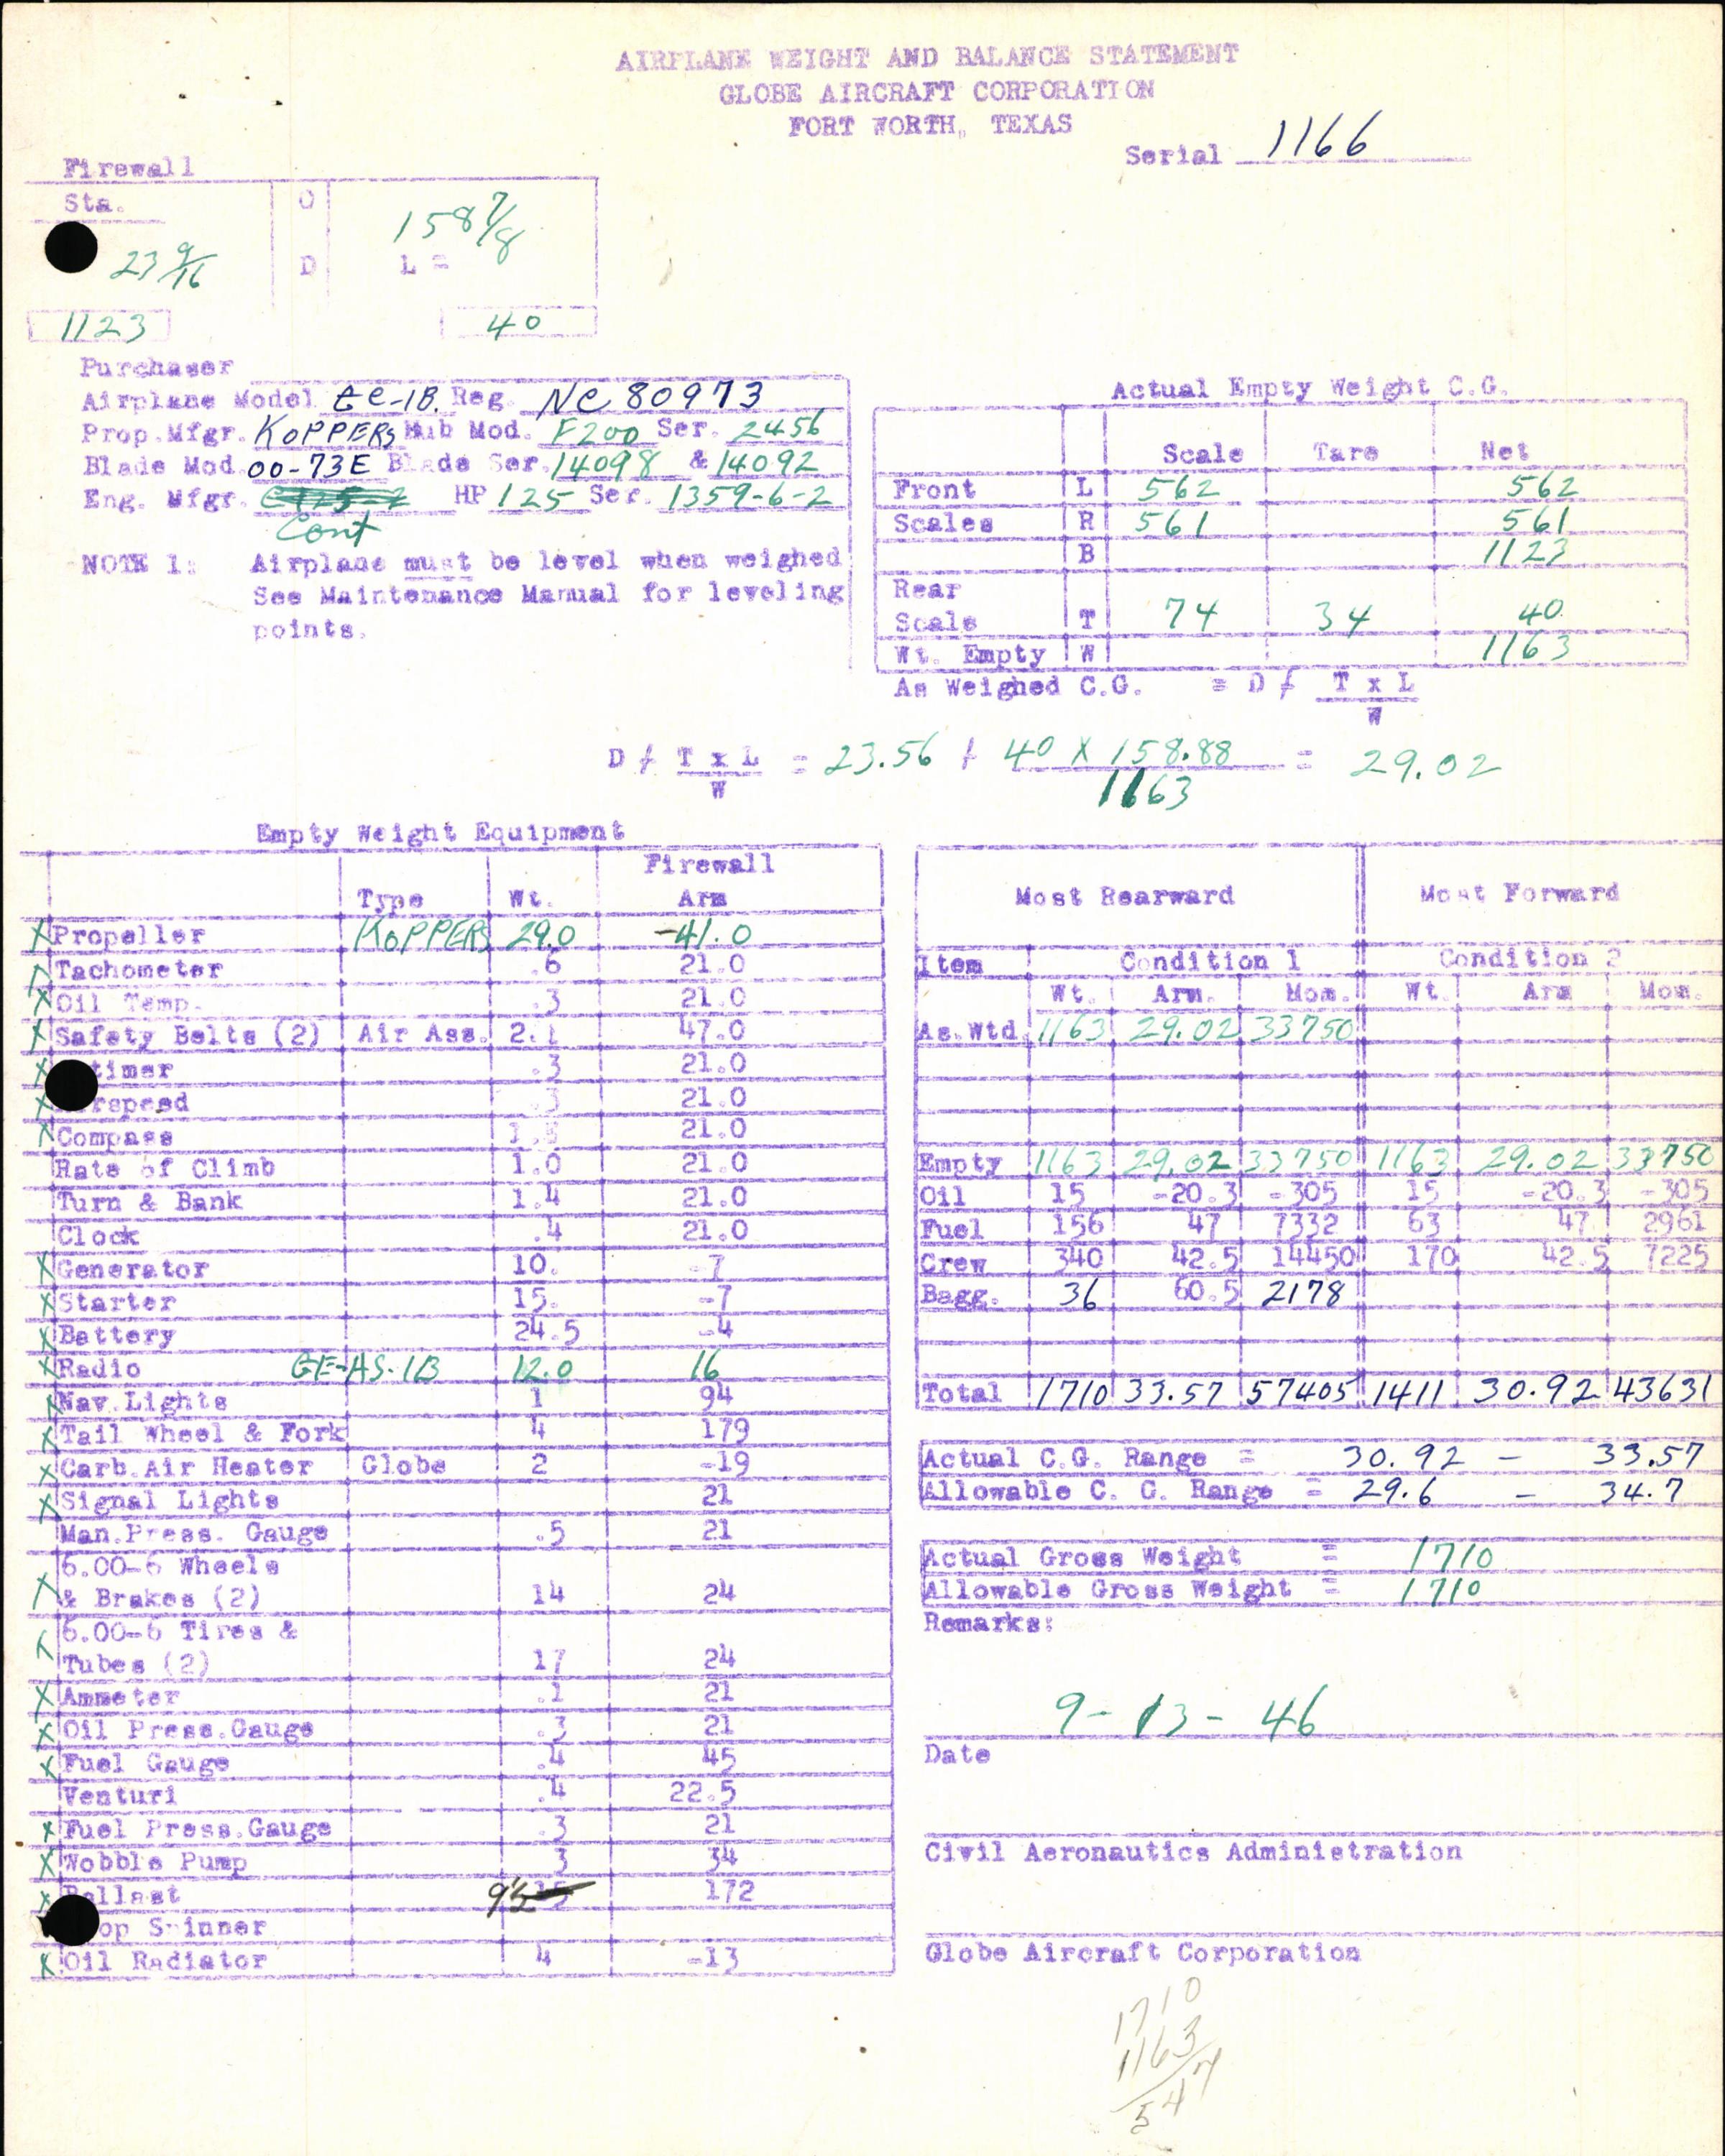 AIRPLANE WEIGHT AND BALANCE STATEMENT
GLOBE AIRCRAFT CORPORATION
FORT WORTH, TEXAS
Serial 1166
Firewall
Sta. O 158 7/8
23 9/16 D L =
1123 40
Purchaser
Airplane Model GC-1B. Reg. NC 80973
Prop. Mfgr. KOPPERS Hub Mod. F200 Ser. 2456
Blade Mod. 00-73E Blade Ser. 14098 & 14092
Eng. Mfgr. Cont HP 125 Ser. 1359-6-2
NOTE 1: Airplane must be level when weighed
See Maintenance Manual for leveling
points.
Actual Empty Weight C.G.
Scale Tare Net
Front L 562 562
Scales R 561 561
B 1123
Rear
Scale T 74 34 40
Wt. Empty W 1163
As Weighed C.G. = D / T x L
W
D / T x L = 23.56 / 40 X 158.88 = 29.02
W 1163
Empty Weight Equipment
Firewall
Type Wt. Arm
X Propeller KOPPERS 29.0 -41.0
Tachometer .6 21.0
X Oil Temp. .3 21.0
X Safety Belts (2) Air Ass. 2.1 47.0
X timer .3 21.0
X rspeed .3 21.0
X Compass 21.0
Rate of Climb 1.0 21.0
Turn & Bank 1.4 21.0
Clock .4 21.0
X Generator 10. -7
X Starter 15. -7
X Battery 24.5 -4
X Radio GE-AS-1B 12.0 16
X Nav. Lights 1 94
X Tail Wheel & Fork 4 179
X Carb. Air Heater Globe 2 -19
X Signal Lights 21
Man. Press. Gauge .5 21
6.00-6 Wheels
X & Brakes (2) 14 24
X 6.00-6 Tires &
Tubes (2) 17 24
X Ammeter .1 21
X Oil Press. Gauge .3 21
X Fuel Gauge .4 45
Venturi .4 22.5
X Fuel Press. Gauge .3 21
X Wobble Pump 3 34
X Ballast 9½ 15 172
op Spinner
X Oil Radiator 4 -13
Most Rearward Most Forward
Item Condition 1 Condition 2
Wt. Arm. Mom. Wt. Arm Mom.
As. Wtd. 1163 29.02 33750
Empty 1163 29.02 33750 1163 29.02 33750
Oil 15 -20.3 -305 15 -20.3 -305
Fuel 156 47 7332 63 47 2961
Crew 340 42.5 14450 170 42.5 7225
Bagg. 36 60.5 2178
Total 1710 33.57 57405 1411 30.92 43631
Actual C.G. Range = 30.92 - 33.57
Allowable C. G. Range = 29.6 - 34.7
Actual Gross Weight = 1710
Allowable Gross Weight = 1710
Remarks:
9-13-46
Date
Civil Aeronautics Administration
Globe Aircraft Corporation
1710
1163
547